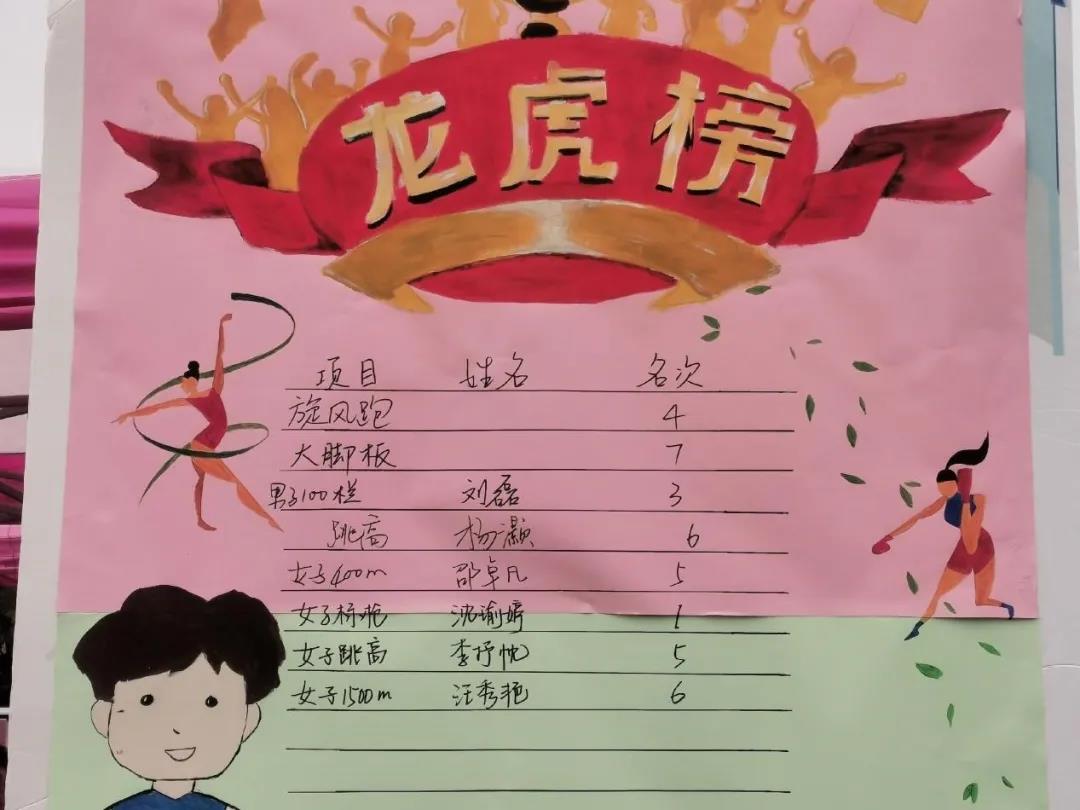 龙虎榜
项目 姓名 名次
旋风跑 4
大脚板 7
男子100栏 刘磊 3
跳高 杨灏 6
女子400m 邵卓凡 5
女子标枪 沈瑜婷 1
女子跳高 李抒忱 5
女子1500m 汪秀艳 6